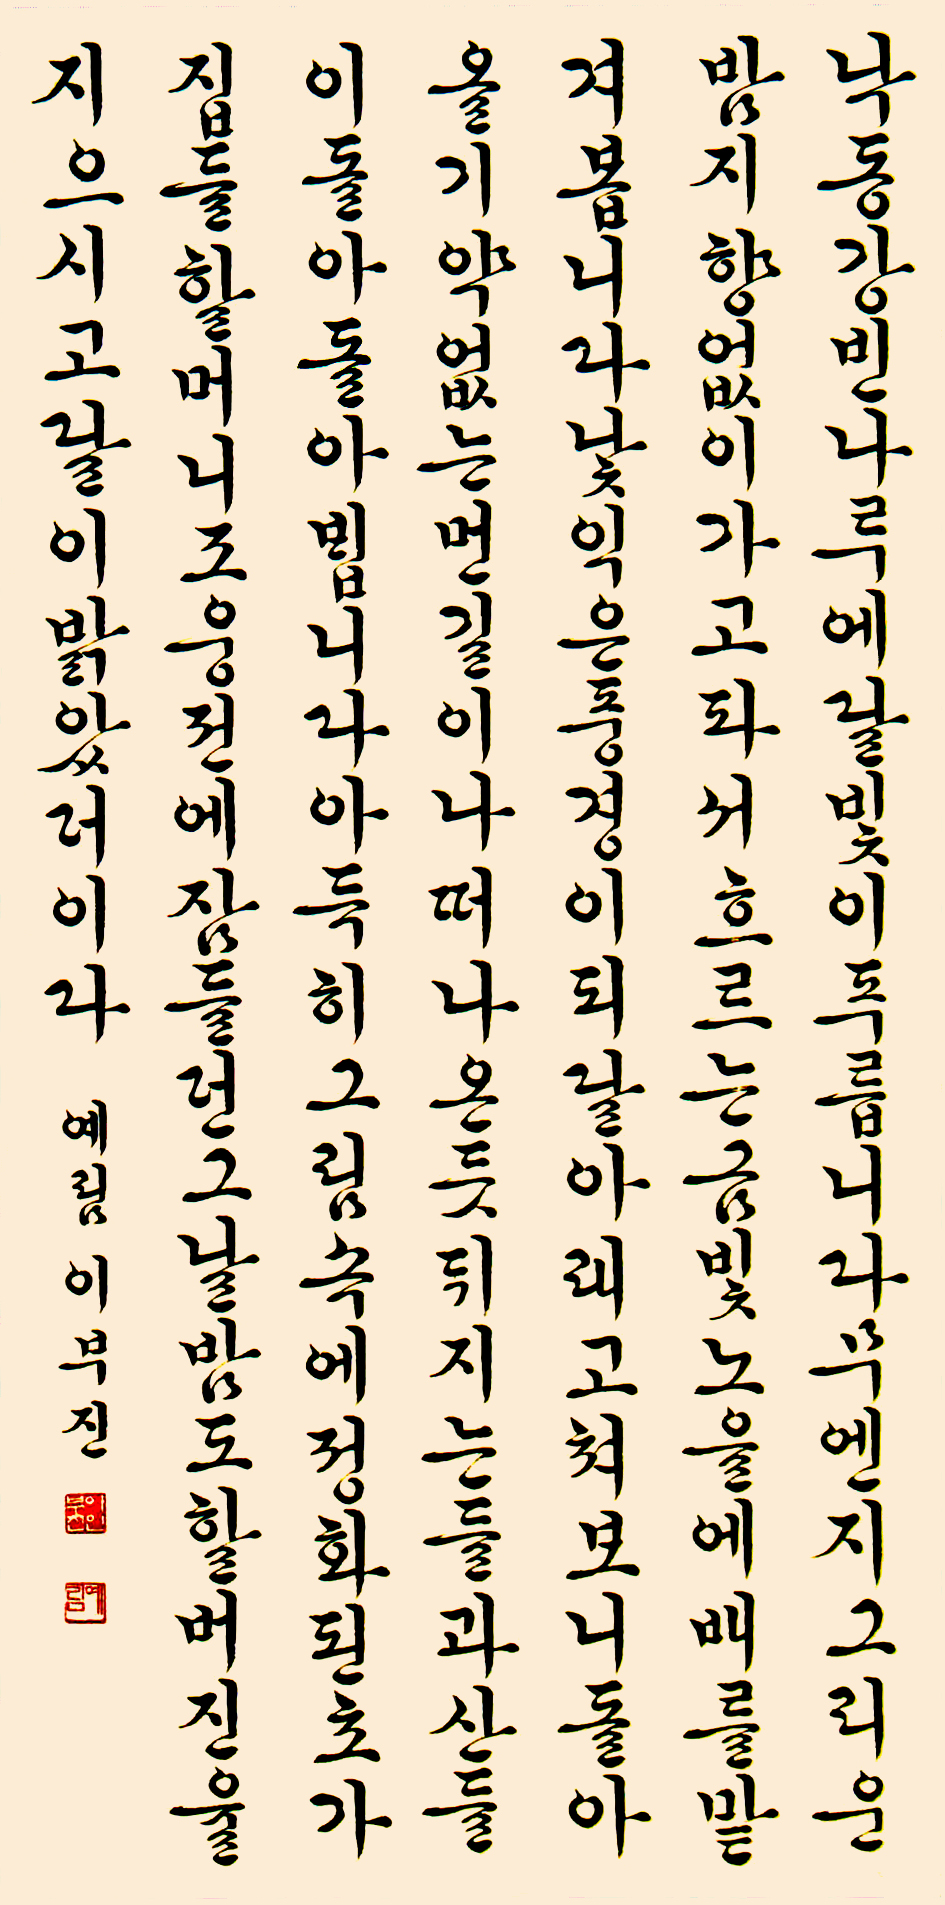 낙동강빈나루에달빛이푸릅니다무엔지그리운
밤지향없이가고파서흐르는금빛노을에배를맡
겨봅니다낯익은풍경이되달아래고쳐보니돌아
올기약없는먼길이나떠나온듯뒤지는들과산들
이돌아돌아뵙니다아득히그림속에정화된초가
집들할머니조웅전에잠들던그날밤도할버진율
지으시고달이밝았더이다 예림 이부진
예림